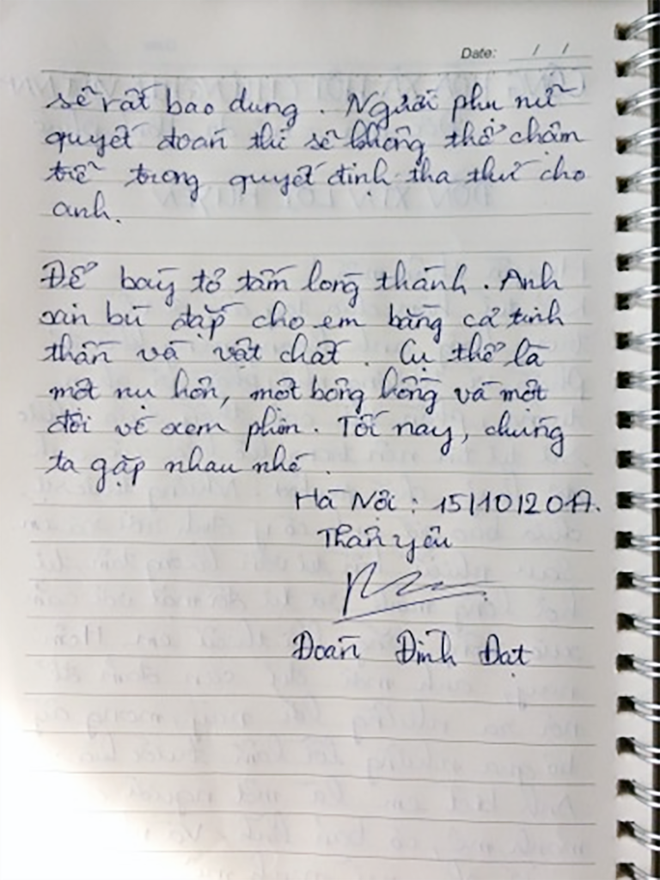 Date: / /
sẽ rất bao dung. Người phụ nữ
quyết đoán thì sẽ không thể chậm
trễ trong quyết định tha thứ cho
anh.
Để bày tỏ tấm lòng thành. Anh
xin bù đắp cho em bằng cả tinh
thần và vật chất. Cụ thể là
một nụ hôn, một bông hồng và một
đôi vé xem phim. Tối nay, chúng
ta gặp nhau nhé.
Hà Nội: 15/10/2017.
Thân yêu
Đoàn Đình Đạt